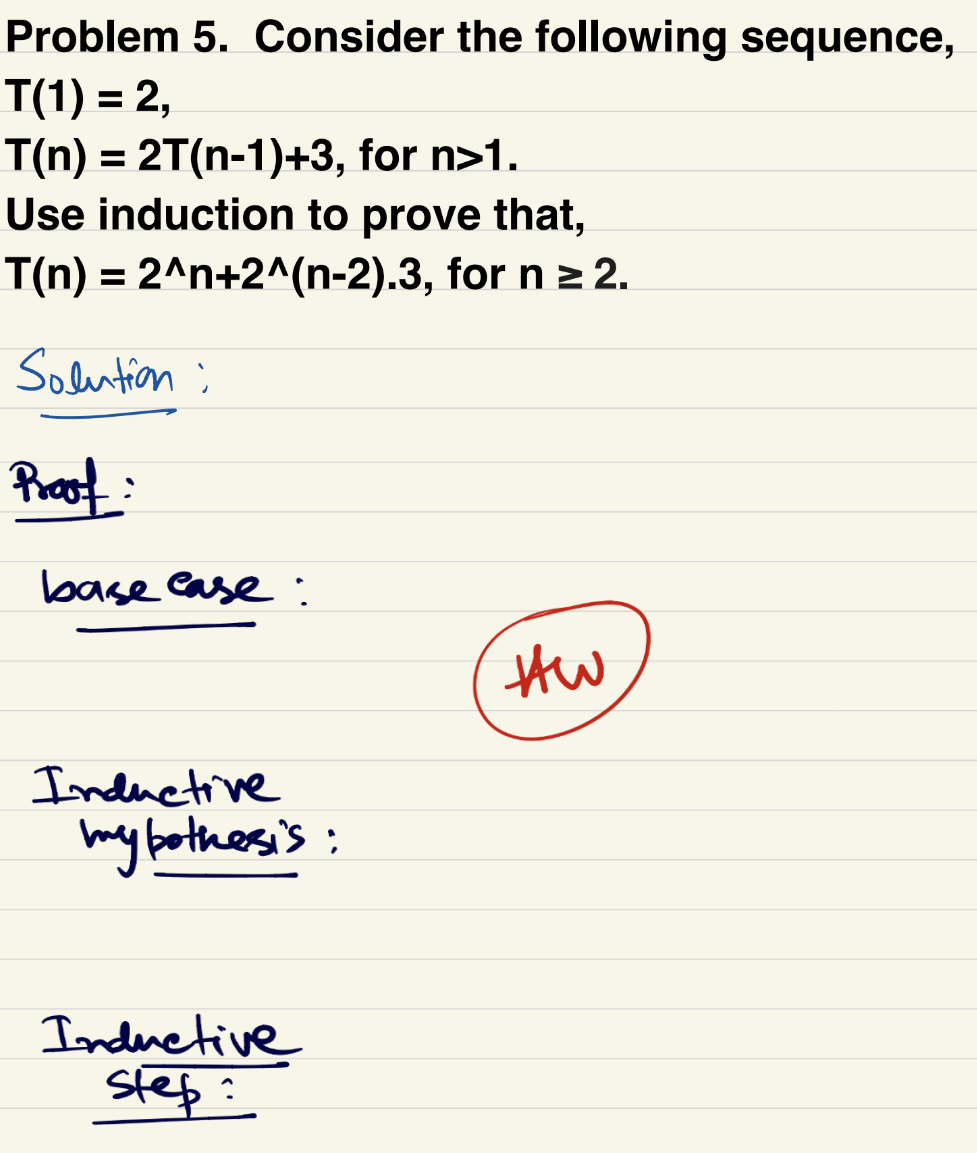 Problem 5. Consider the following sequence,
T(1) = 2,
T(n) = 2T(n-1)+3, for n>1.
Use induction to prove that,
T(n) = 2^n+2^(n-2).3, for n ≥ 2.
Solution :
Proof :
base case :
HW
Inductive
hypothesis :
Inductive
step :